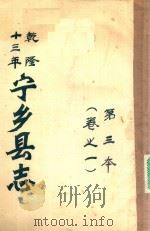 乾隆
十三年
宁乡县志
第三本
(卷之一)
mtoou.info yundu